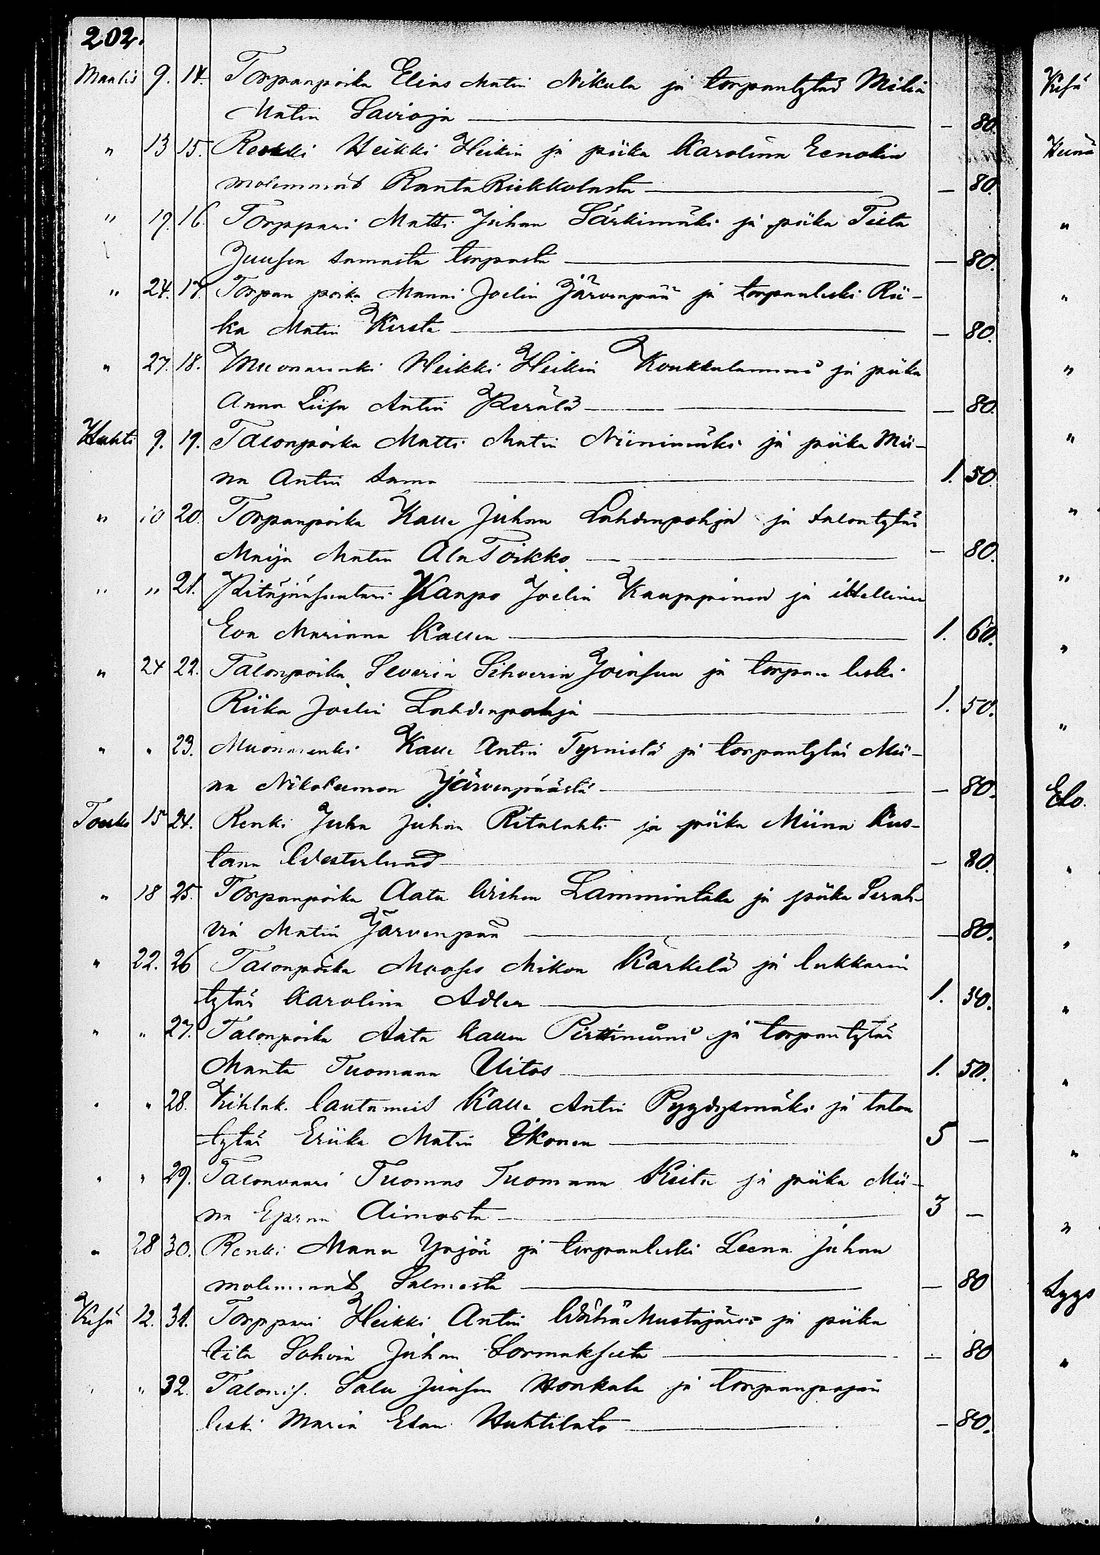 202.
Maalis 9. 14. Torpanpoika Elias Matin Nikula ja torpantytär Milia
Matin Sairoja — 80.
" 13 15. Renki Heikki Heikin ja piika Karolina Eenokin
molemmat Ranta Riekkolasta — 80.
" 19. 16. Torppari Matti Juhan Särkimäki ja piika Tiita
Juusen samasta torpasta — 80.
" 24. 17. Torpan poika Manni Joelin Järvenpää ja torpanleski Rii-
ka Matin — 80.
" 27. 18. Muonarenki Heikki Heikin Koukkulammi ja piika
Anna Liisa Antin Perälä — 80.
Huhti 9. 19. Talonpoika Matti Matin Niinimäki ja piika Mii-
na Antin sama 1. 50.
" 10 20. Torpanpoika Kalle Juhan Lahdenpohja ja talontytär
Maija Matin Ala Toikko — 80.
" " 21. Pitäjänsuutari Kanpo Joelin Kauppinen ja itsellinen
Eva Marianna Kallen 1. 60.
" 24 22. Talonpoika Severin Sihverin Joensuu ja torpan leski
Riika Joelin Lahdenpohja 1. 50.
" " 23. Muonarenki Kalle Antin Tyrnistä ja torpantytär Mii-
na Nikoteemon Järvenpäästä — 80.
Touko 15 24. Renki Juha Juhan Ritalahti ja piika Miina Kus-
taan Westerlund — 80.
" 18 25. Torpanpoika Aata Wihon Lammintaka ja piika Serah-
via Matin Järvenpää — 80.
" 22. 26 Talonpoika Mooses Mikon Karkela ja lukkarin
tytär Karolina Adlen 1. 30.
" " 27. Talonpoika Aata Kallen Pirttiniemi ja torpantytär
Manta Tuomaan Uitos 1. 50.
" " 28. Kihlak. lautamies Kalle Antin Pyydysmäki ja talon
tytär Eriika Matin Ikonen 5 —
" " 29. Talonvaari Tuomas Tuomaan Keito ja piika Mii-
na Epran Aimosta 3 —
" 28 30. Renki Manu Yrjön ja torpanleski Leena Juhan
molemmat Salmesta — 80
Kesä 12. 31. Torppari Heikki Antin Wähä Mustajärvi ja piika
tita Sohvia Juhan Sormaksuta — 80
" " 32. Talonis. Salu Juusen Honkala ja torpanpojan
leski Maria Esan Huhtilato — 80.
Kesä
Heinä
"
"
"
"
"
"
"
"
Elo.
"
"
"
"
"
"
Syys
"